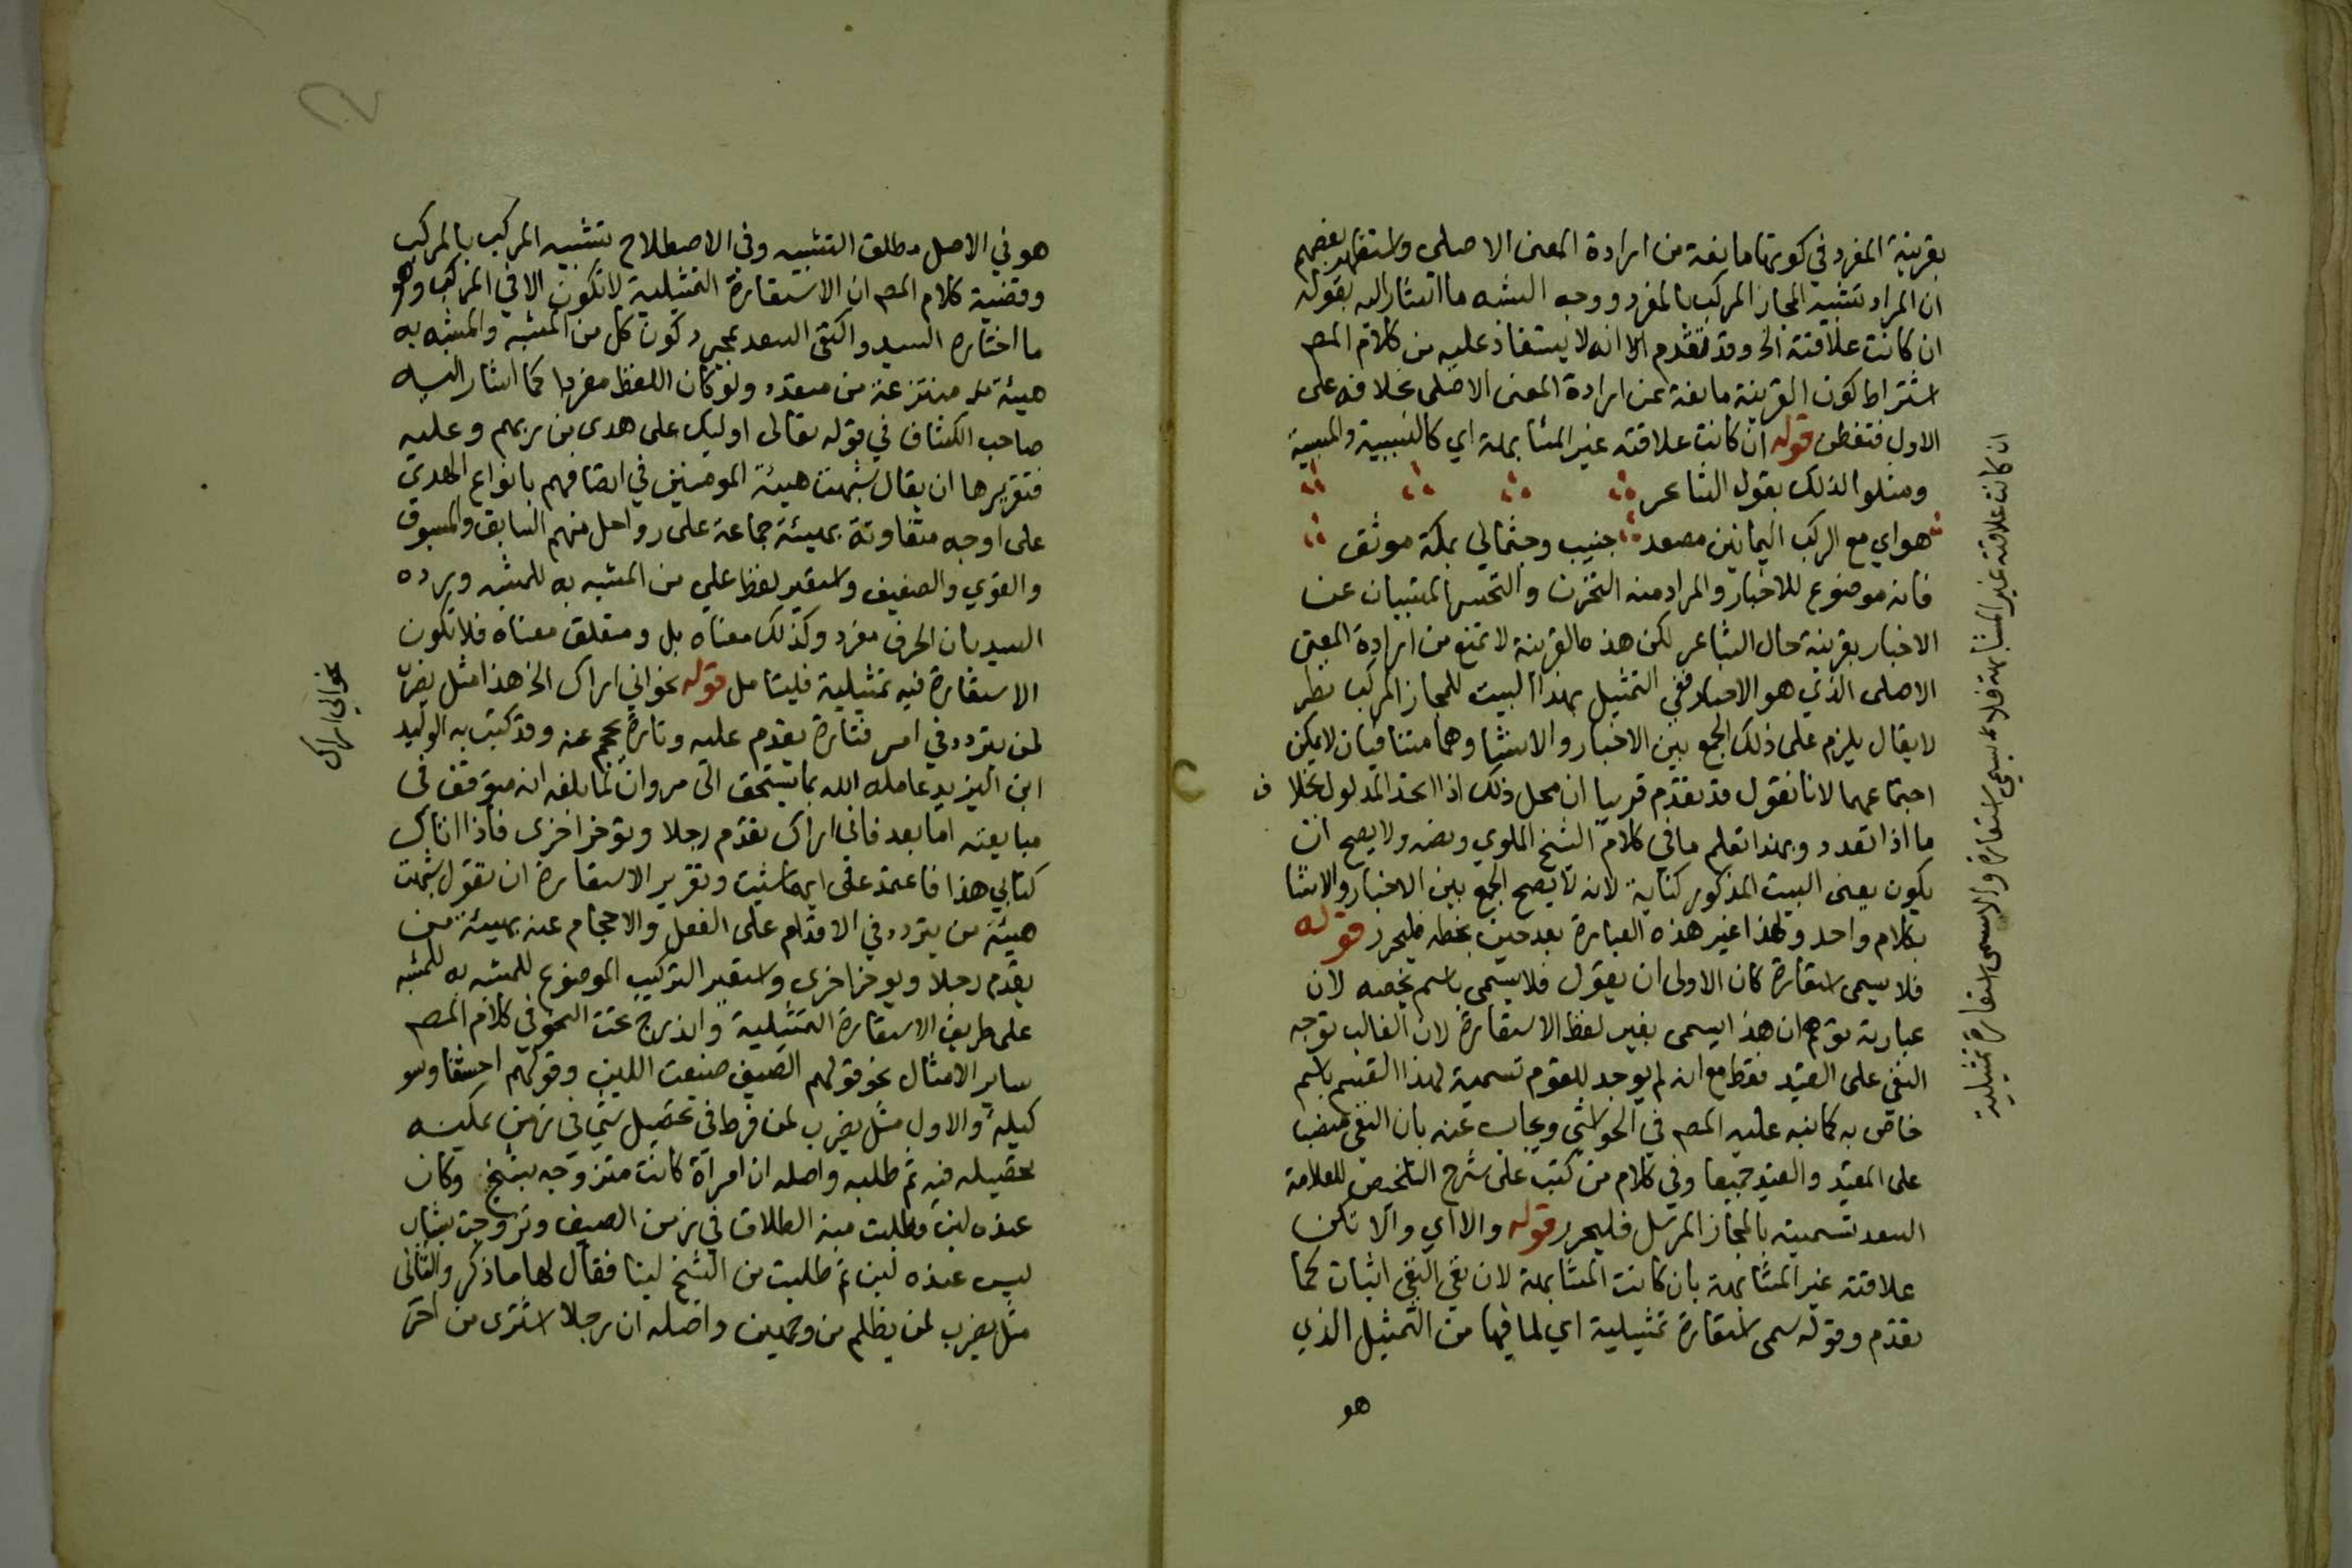 بقرينة المفرد في كونها مانعة من ارادة المعنى الاصلى واستظهر بعضهم
ان المراد تشبيه المجاز المركب بالمفرد ووجه الشبه ما اشار اليه بقوله
ان كانت علاقته الخ وقد تقدم الا انه لا يستفاد عليه من كلام المص
اشتراط كون القرينة مانعة عن ارادة المعنى الاصلى بخلافه على
الاول فتفطن قوله ان كانت علاقته غير المشابهة اي كالسببية والمسببية
ومثلوا لذلك بقول الشاعر
هواي مع الركب اليمانين مصعد جنيب وجثمالي بمكة موثق
فانه موضوع للاخبار والمراد منه التحزن والتحسر المتسببان عن
الاخبار بقرينة حال الشاعر لكن هذه القرينة لا تمنع من ارادة المعنى
الاصلى الذي هو الاخبار ففي التمثيل بهذا البيت للمجاز المركب نظر
لا يقال يلزم على ذلك الجمع بين الاخبار والانشا وهما متنافيان لا يمكن
اجتماعهما لانا نقول قد تقدم قريبا ان محل ذلك اذا اتحد المدلول بخلاف
ما اذا تعدد وبهذا تعلم ما في كلام الشيخ الملوي ونصه ولا يصح ان
يكون يعنى البيت المذكور كناية لانه لا يصح الجمع بين الاخبار والانشا
بكلام واحد ولهذا غير هذه العبارة بعد حين بخطه فليحرر قوله
فلا يسمى استعارة كان الاولى ان يقول فلا يسمى باسم يخصه لان
عبارته توهم ان هذا يسمى بغير لفظ الاستعارة لان الغالب توجه
النفي على القيد فقط مع انه لم يوجد للقوم تسمية لهذا القسم باسم
خاص به كما نبه عليه المص في الحواشي ويجاب عنه بان النفي منصب
على المقيد والقيد جميعا وفي كلام من كتب على شرح التلخيص للعلامة
السعد تسميته بالمجاز المرسل فليحرر قوله والا اي والا تكن
علاقته غير المشابهة بان كانت المشابهة لان نفي النفي اثبات كما
تقدم وقوله سمى استعارة تمثيلية اي لما فيها من التمثيل الذي
هو
ان كانت علاقته غير المشابهة فلا يسمى استعارة والا سمى استعارة تمثيلية
هو في الاصل مطلق التشبيه وفي الاصطلاح تشبيه المركب بالمركب
وقضية كلام المص ان الاستعارة التمثيلية لا تكون الا في المركب وهو
ما اختاره السيد واكتفى السعد بمجرد كون كل من المشبه والمشبه به
هيئة منتزعة من متعدد ولو كان اللفظ مفردا كما اشار اليه
صاحب الكشاف في قوله تعالى اوليك على هدى من ربهم وعليه
فتقريرها ان يقال شبهت هيئة المومنين في اتصافهم بانواع الهدى
على اوجه متفاوتة بهيئة جماعة على رواحل منهم السابق والمسبوق
والقوي والضعيف واستعير لفظ على من المشبه به للمشبه ويرده
السيد بان الحرف مفرد وكذلك معناه بل ومتعلق معناه فلا تكون
الاستعارة فيه تمثيلية فليتامل قوله نحو اني اراك الخ هذا مثل يضرب
لمن يتردد في امر فتارة يقدم عليه وتارة يحجم عنه وقد كتب به الوليد
ابن اليزيد عامله الله بما يستحق الى مروان لما بلغه انه متوقف في
مبايعته اما بعد فاني اراك تقدم رجلا وتوخر اخرى فاذا اتاك
كتابي هذا فاعتمد على ايهما شيت وتقرير الاستعارة ان تقول شبهت
هيئة من يتردد في الاقدام على الفعل والاحجام عنه بهيئة من
يقدم رجلا ويوخر اخرى واستعير التركيب الموضوع للمشبه به للمشبه
على طريق الاستعارة التمثيلية واندرج تحت النحو في كلام المص
ساير الامثال نحو قولهم الصيف ضيعت اللبن وقولهم احشفا وسو
كيلة والاول مثل يضرب لمن فرط في تحصيل شي في زمن يمكنه
تحصيله فيه ثم طلبه واصله ان امراة كانت متزوجه بشيخ وكان
عنده لبن فطلبت منه الطلاق في زمن الصيف وتزوجت بشاب
ليس عنده لبن ثم طلبت من الشيخ لبنا فقال لها ما ذكر والثاني
مثل يضرب لمن يظلم من وجهين واصله ان رجلا اشترى من اخر
نحو اني اراك